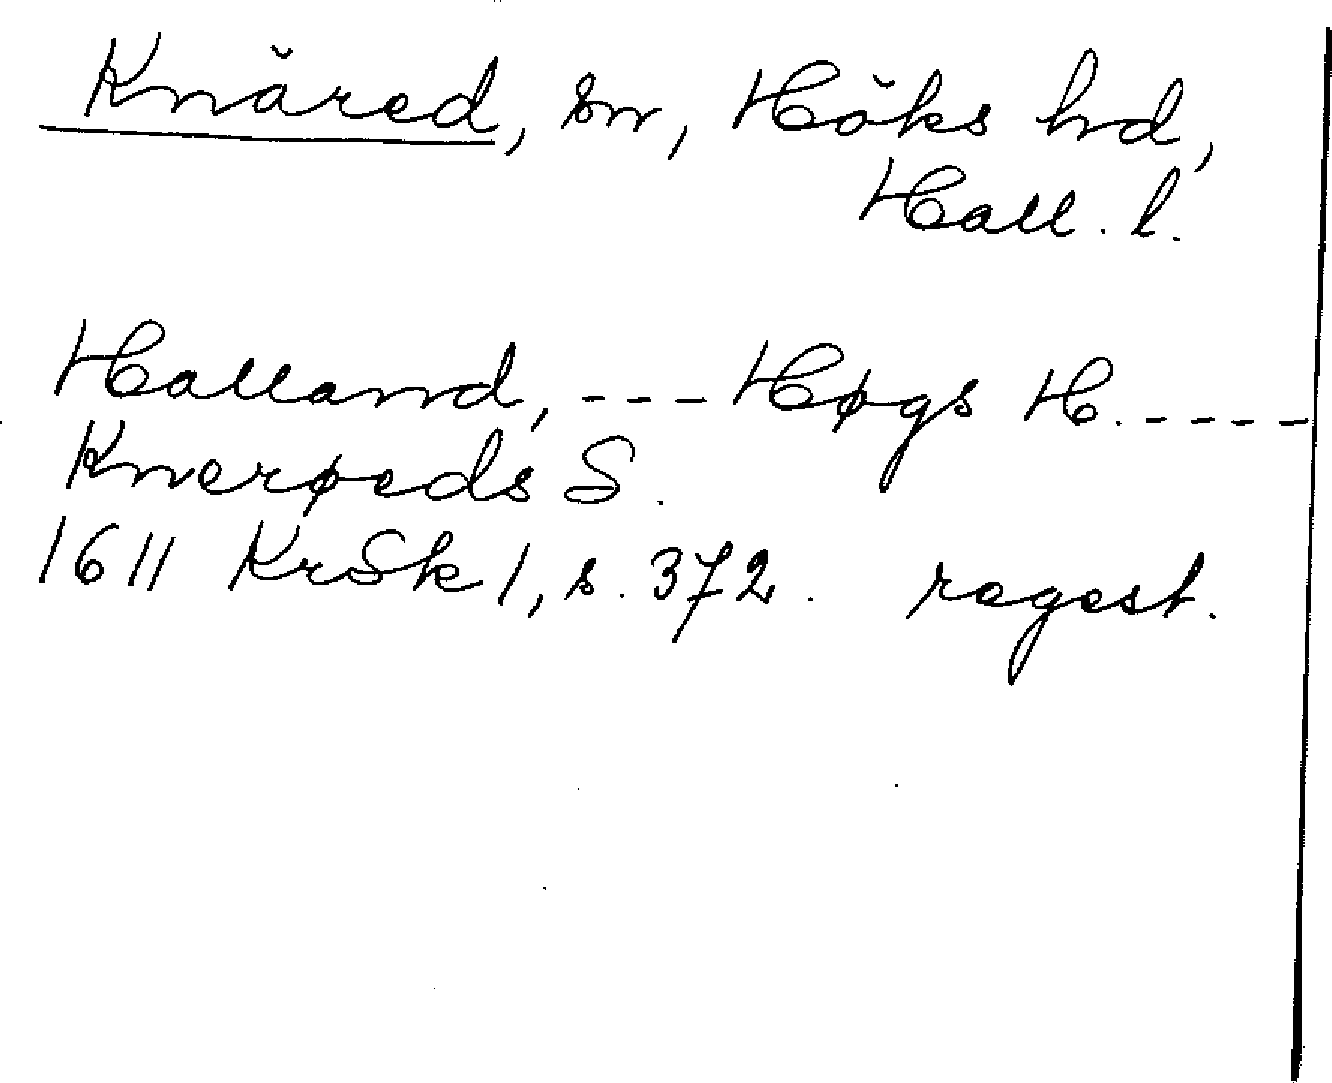 Knäred, sn, Höks hd,
Hall. l.
Halland, --- Høgs H. ----
Knerøeds S.
1611 KrSk 1, s. 372. regest.